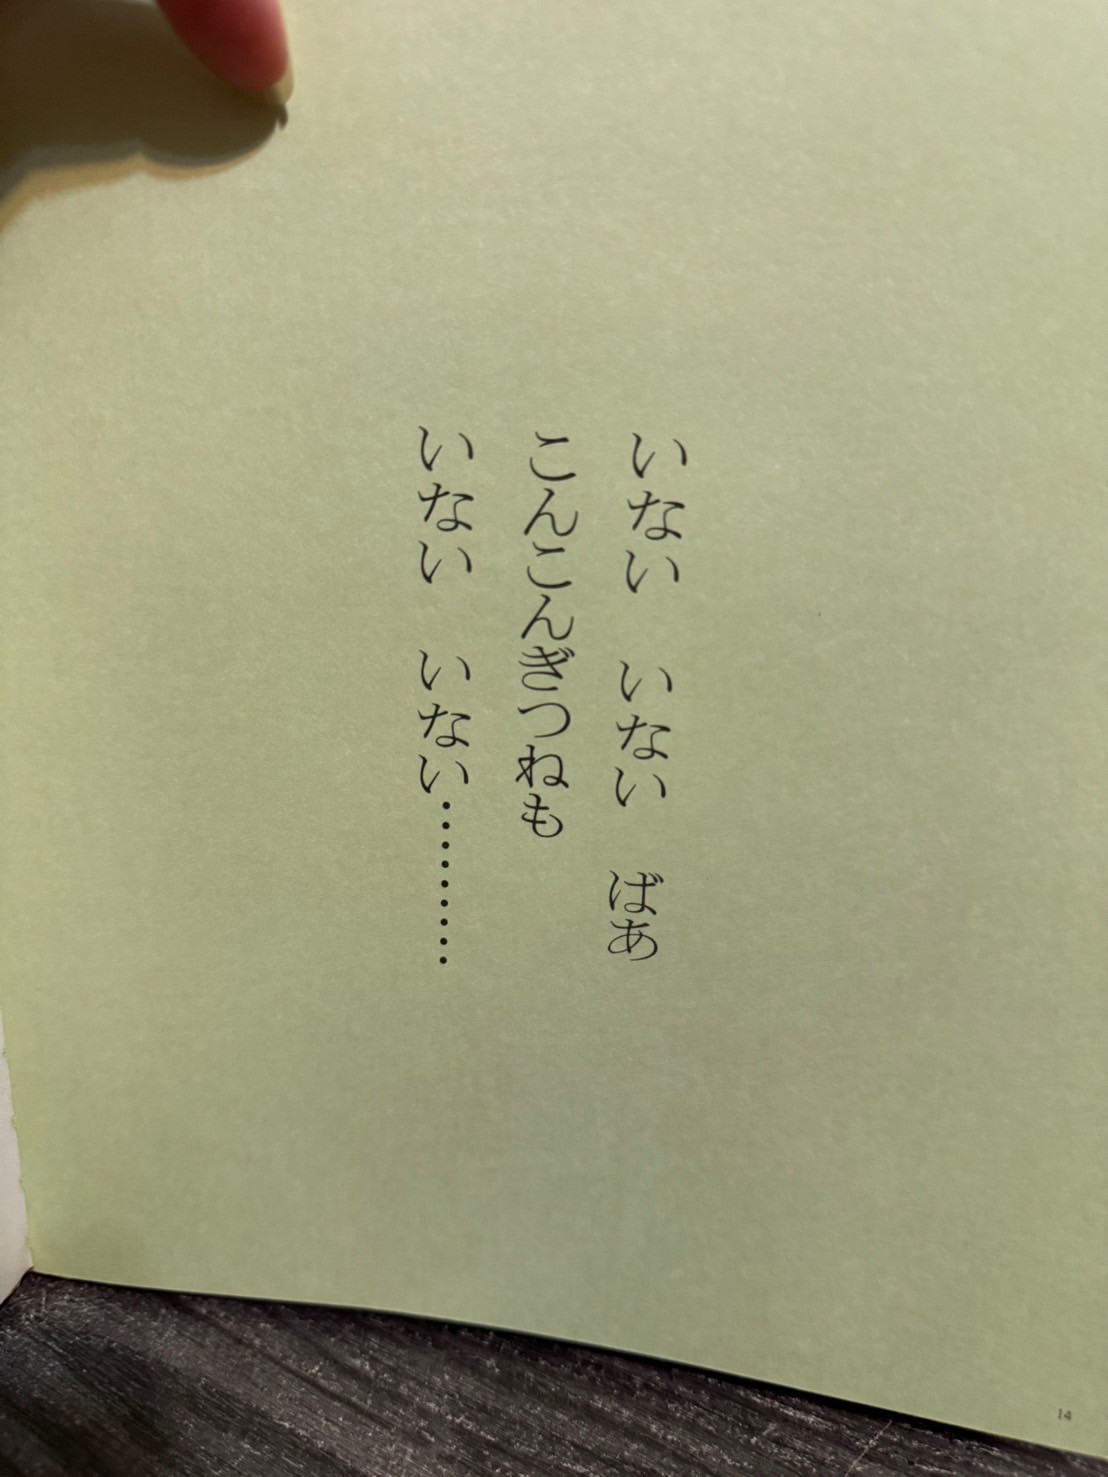 いない　いない　ばあ
こんこんぎつねも
いない　いない………
14